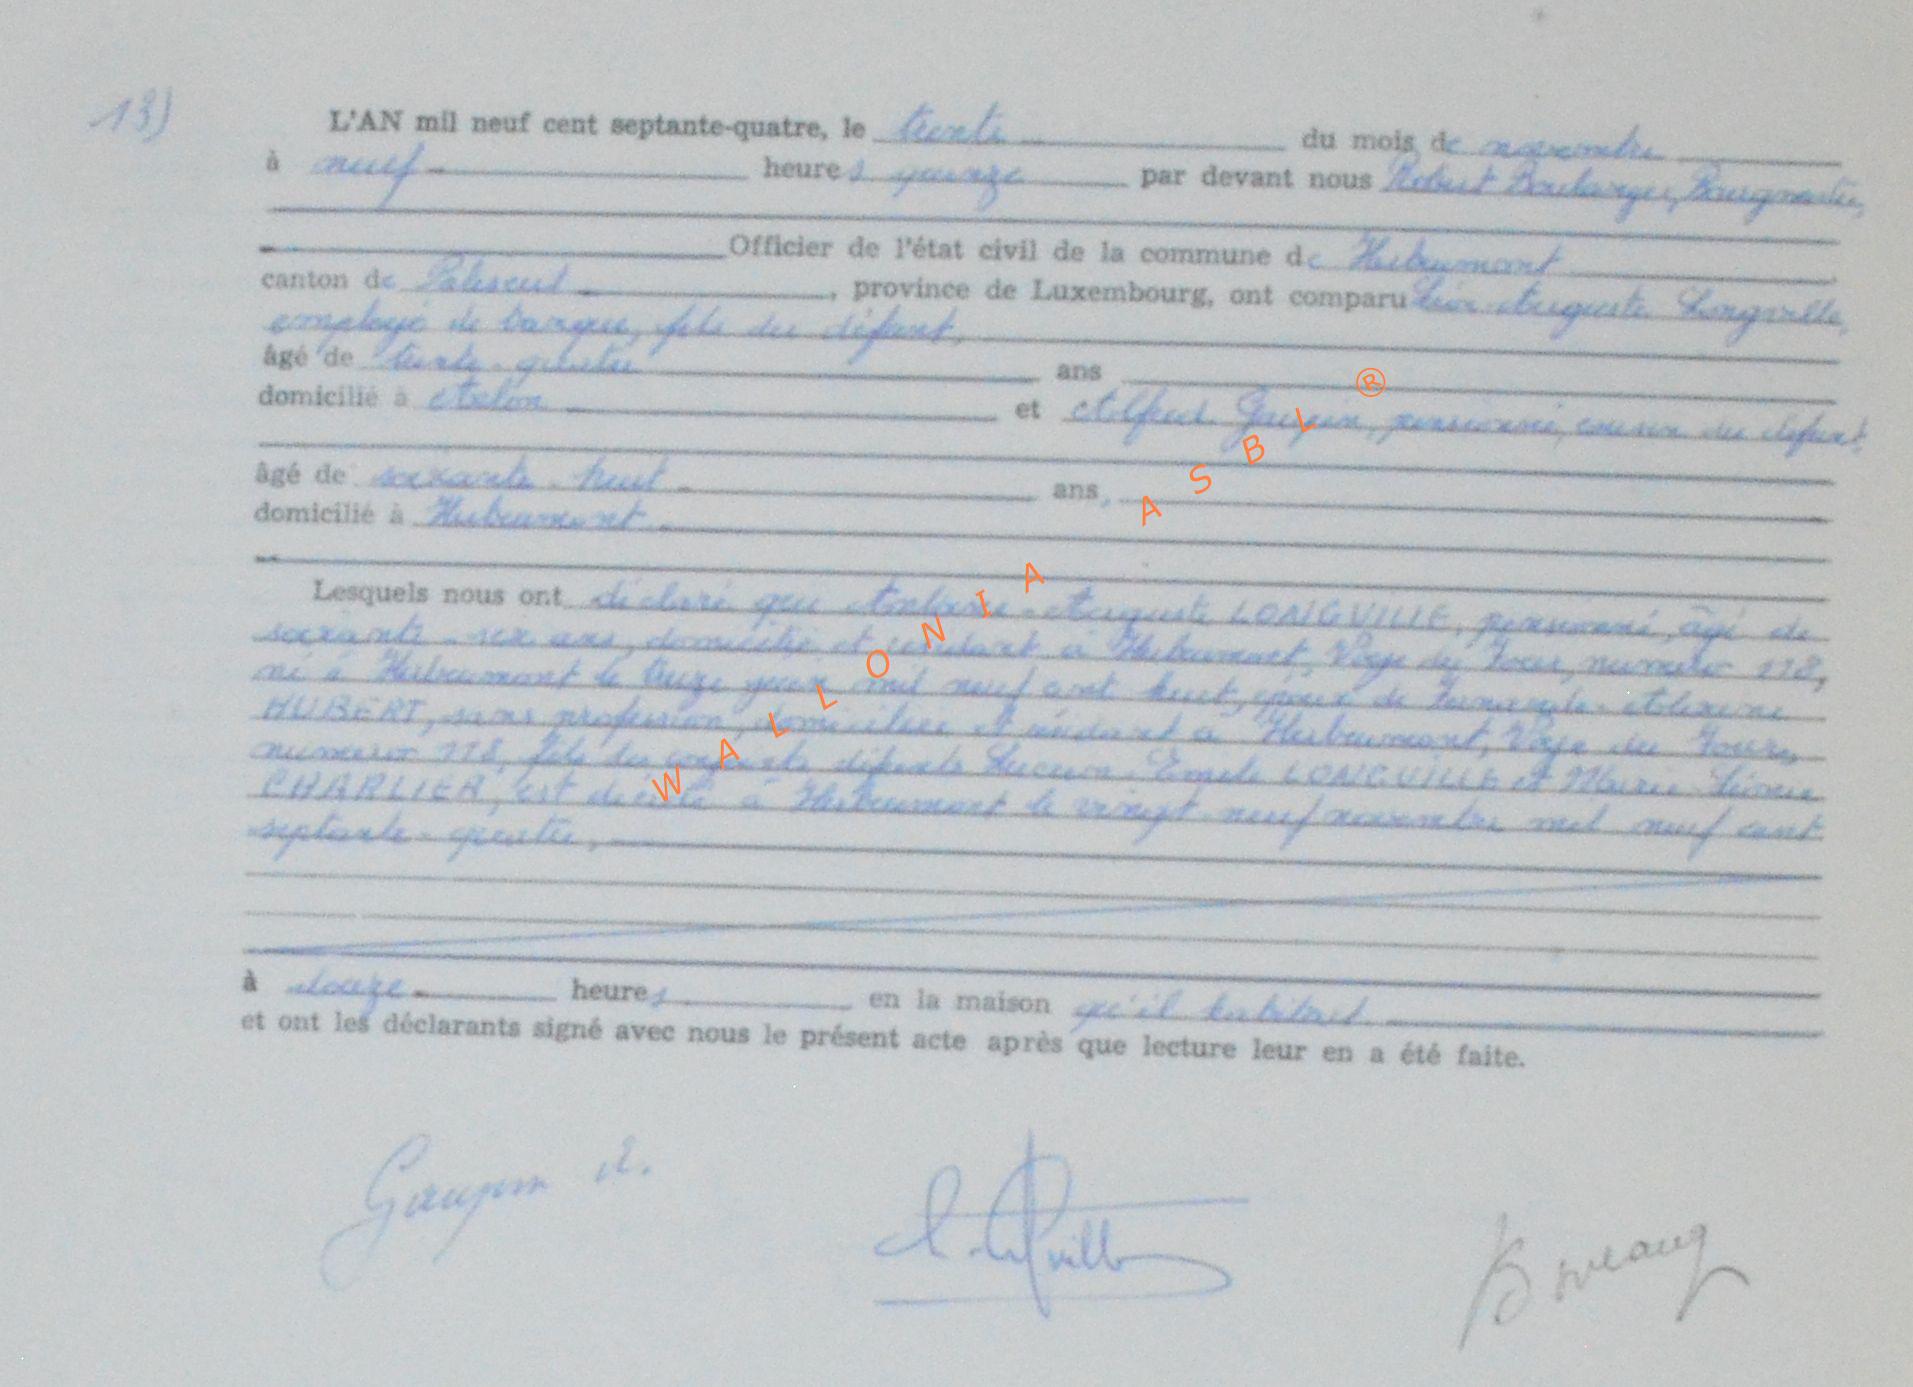 13)
L'AN mil neuf cent septante-quatre, le trente du mois de novembre
à neuf heures quinze par devant nous Robert Boulanger, Bourgmestre,
Officier de l'état civil de la commune de Herbeumont
canton de Paliseul, province de Luxembourg, ont comparu Léon-Auguste Longville,
employé de banque, fils du défunt,
âgé de trente-quatre ans
domicilié à Arlon et Alfred Goupin, pensionné, cousin du défunt,
âgé de soixante-huit ans,
domicilié à Herbeumont
Lesquels nous ont déclaré que Auguste LONGVILLE, pensionné, âgé de
soixante-six ans, domicilié et résidant à Herbeumont, Voye du Four, numéro 178,
né à Herbeumont le treize juin mil neuf cent huit, époux de Fernande
HUBERT, sans profession, domiciliée et résidant à Herbeumont, Voye du Four,
numéro 178, fils des conjoints défunts Lucien-Emile LONGVILLE et Marie-Léonie
CHARLIER, est décédé à Herbeumont le vingt-neuf novembre mil neuf cent
septante-quatre,
à douze heures en la maison qu'il habitait
et ont les déclarants signé avec nous le présent acte après que lecture leur en a été faite.
WALLONIA ASBL ®